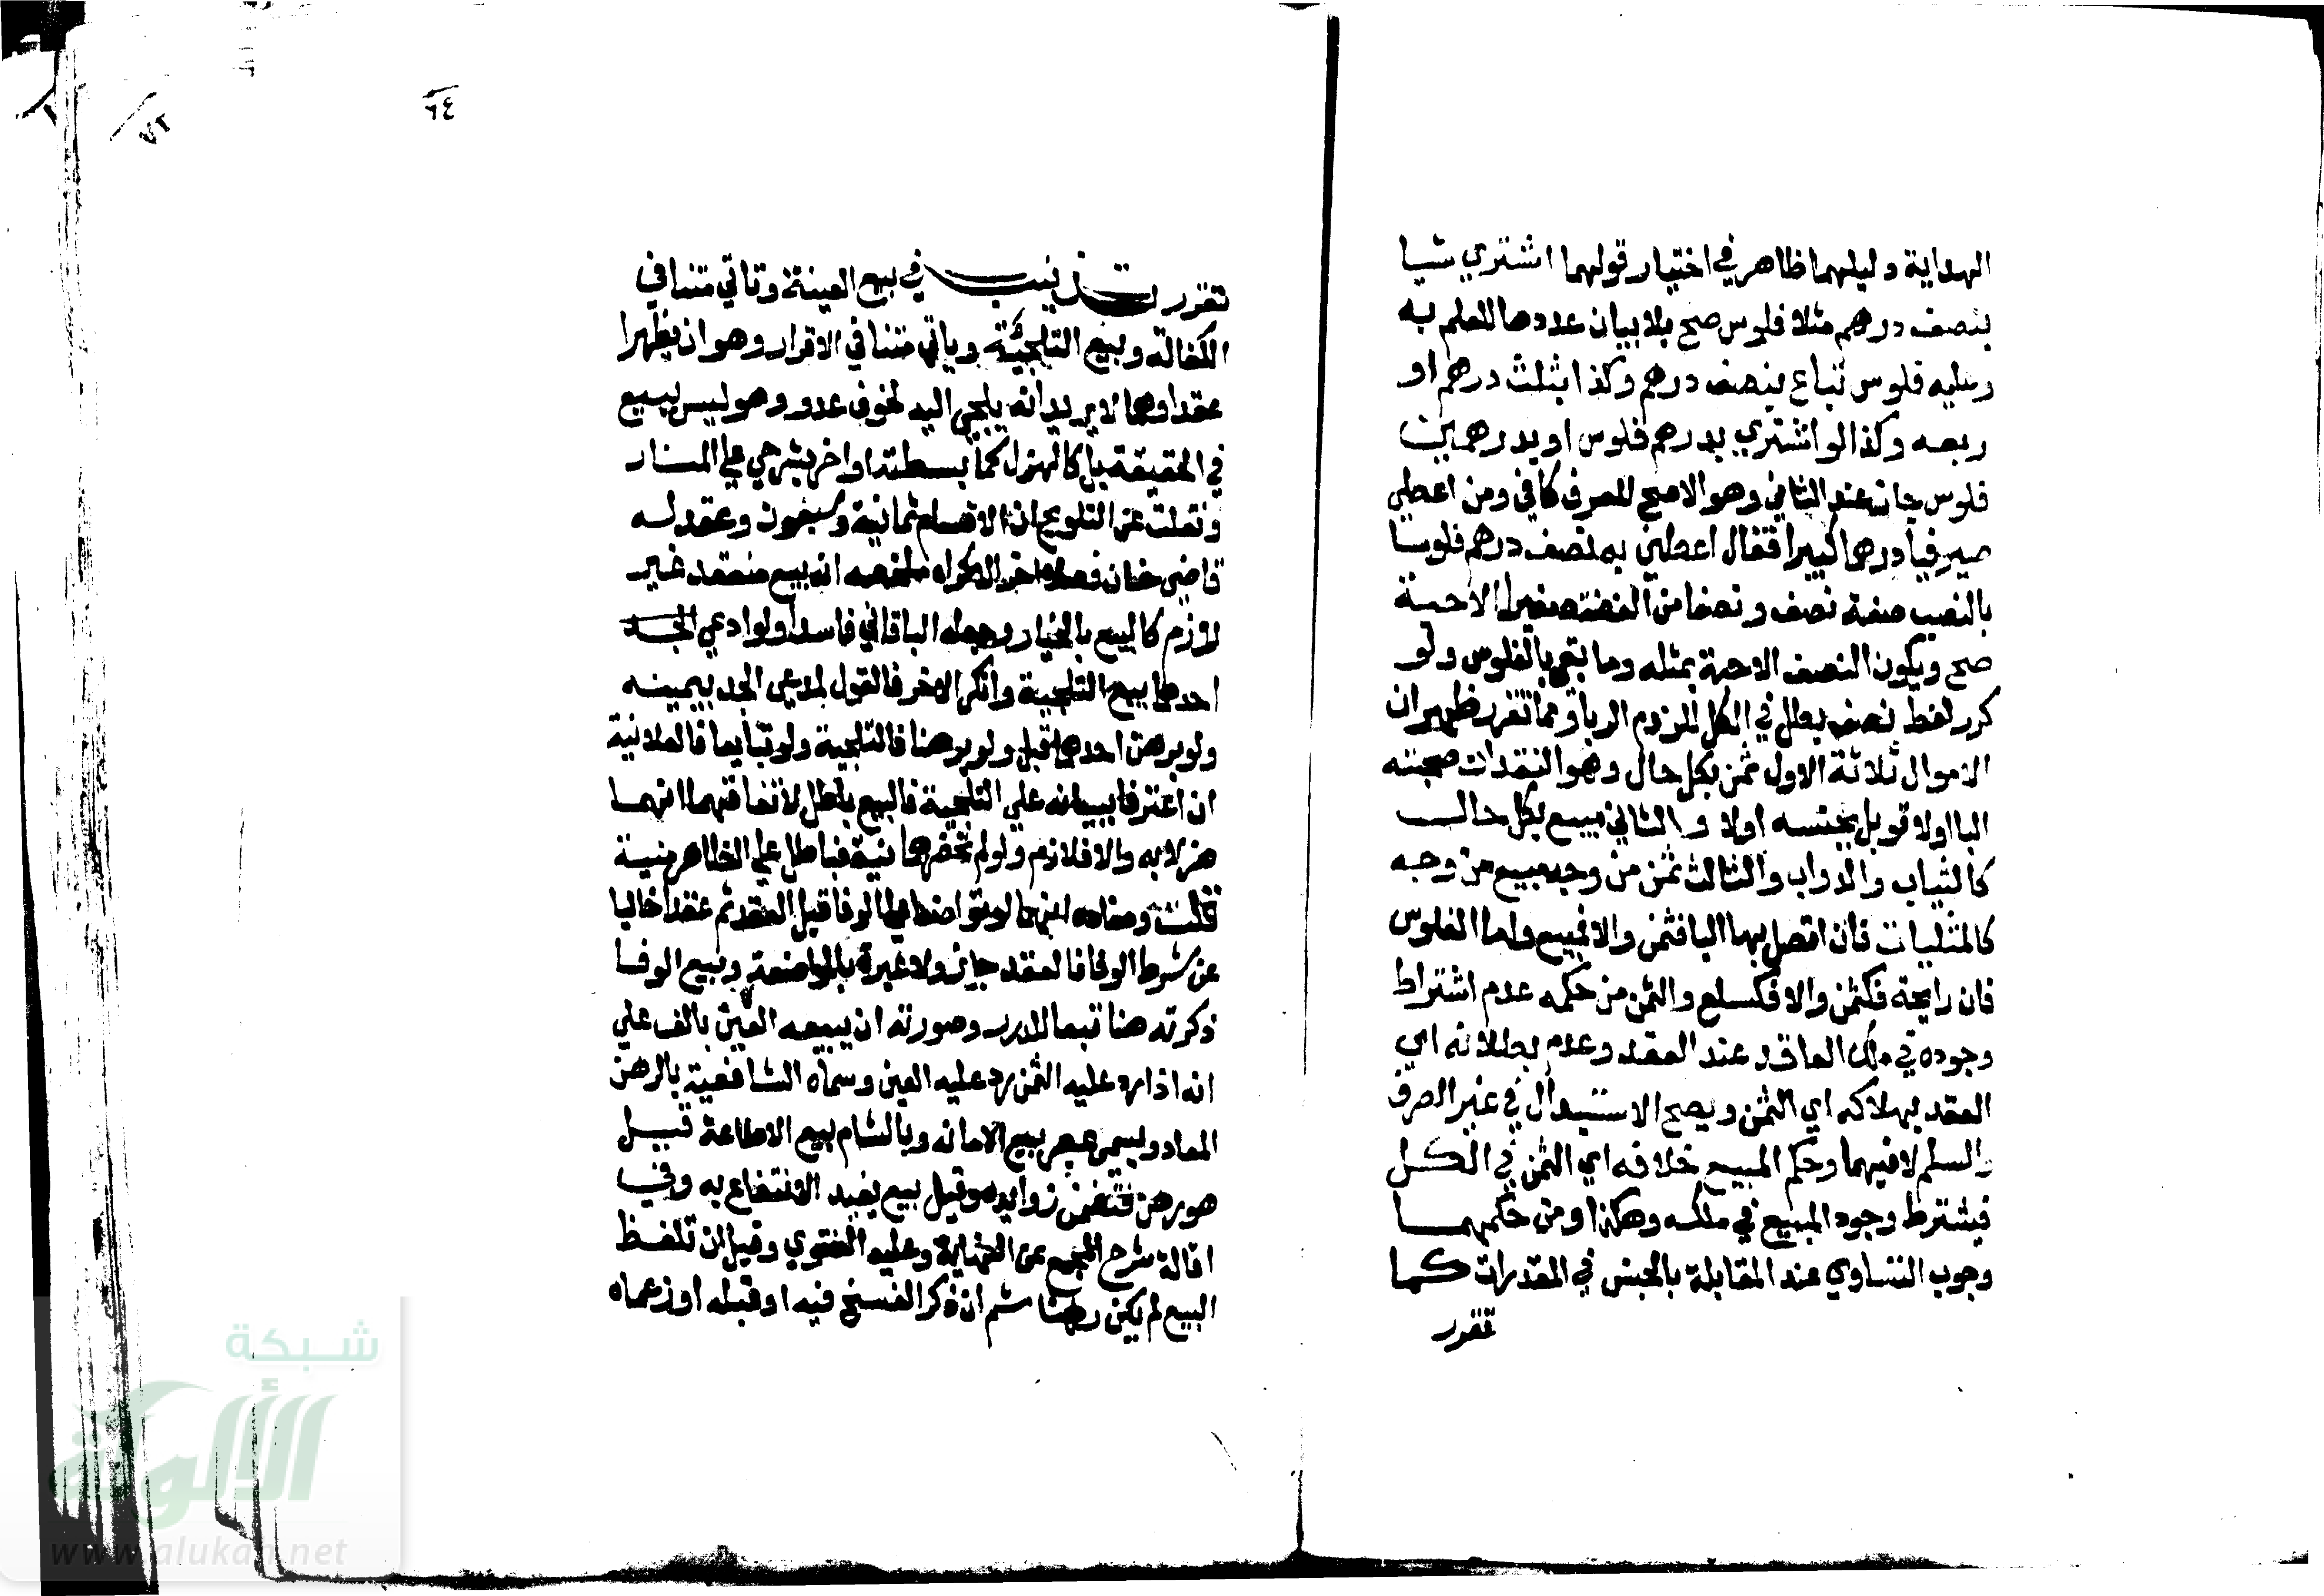 الهداية دليلهما ظاهر في اختيار قولهما اشتري شيا
بنصف درهم مثلا فلوس صح بلا بيان عددها للعلم به
وعليه فلوس تباع بنصف درهم وكذا بثلث درهم او
ربعه وكذا لو اشتري بدرهم فلوس او بدرهمين
فلوس جاز عند الثاني وهو الاصح للعرف كافي ومن اعطي
صيرفيا درهما كبيرا فقال اعطني به نصف درهم فلوسا
بالنصب صفة نصف ونصفا من الفضة صغيرا الا حبة
صح ويكون النصف الا حبة بمثله وما بقي بالفلوس ولو
كرر لفظ نصف بطل في الكل للزوم الربا ومما تقرر ظهر ان
الاموال ثلاثة الاول ثمن بكل حال وهو النقدان صحبته
البا اولا قوبل بجنسه اولا والثاني مبيع بكل حال
كالثياب والدواب والثالث ثمن من وجه مبيع من وجه
كالمثليات فان اتصل بها البا فثمن والا فمبيع واما الفلوس
فان رايجة فكثمن والا فكسلع والثمن من حكمه عدم اشتراط
وجوده في ملك العاقد عند العقد وعدم بطلانه اي
العقد بهلاكه اي الثمن ويصح الاستبدال في غير الصرف
والسلم لا فيهما وحكم المبيع خلافه اي الثمن في الكل
فيشترط وجود المبيع في ملكه وهكذا ومن حكمهما
وجوب التساوي عند المقابلة بالجنس في المقدرات كما
تقرر
٦٤
تقرر تذنيب في بيع العينة وتاتي متنا في
الكفالة وبيع التلجئة وياتي متنا في الاقرار وهو ان يظهرا
عقدا وهما لا يريدانه يلجي اليه لخوف عدو وهو ليس ببيع
في الحقيقة بل كالهزل كما بسطته اواخر شرحي علي المنار
ونقلت عن التلويح ان الاقسام ثمانية وسبعون وعقد له
قاضي خان فصلا اخر الاكراه ملخصه انه بيع منعقد غير
لازم كالبيع بالخيار وجعله الباقاني فاسدا ولو ادعي الجد
احدهما بيع التلجية وانكر الاخر فالقول لمدعي الجد بيمينه
ولو برهن احدهما قبل ولو برهنا فالتلجية ولو تبايعا في العلانية
ان اعترفا ببيانه علي التلجية فالبيع باطل لاتفاقهما انهما
هزلا به والا فلازم ولو لم تحضرهما نية فباطل علي الظاهر منية
قلت ومفاده انهما لو تواضعا علي الوفا قبل العقد ثم عقدا خاليا
عن شرط الوفا فالعقد جايز ولا عبرة بالمواضعة وبيع الوفا
ذكرته هنا تبعا للدرر وصورته ان يبيعه العين بالف علي
انه اذا رد عليه الثمن رد عليه العين وسماه الشافعية بالرهن
المعاد ويسمي بمصر بيع الامانه وبالشام بيع الاطاعة قيل
هو رهن فتضمن زوايده وقيل بيع يفيد الانتفاع به وفي
اقالة شرح المجمع عن النهاية وعليه الفتوي وقيل ان تلفظ
البيع لم يكن رهنا ثم ان ذكر الفسخ فيه او قبله او زعماه
شبكة
الألوكة
www.alukah.net